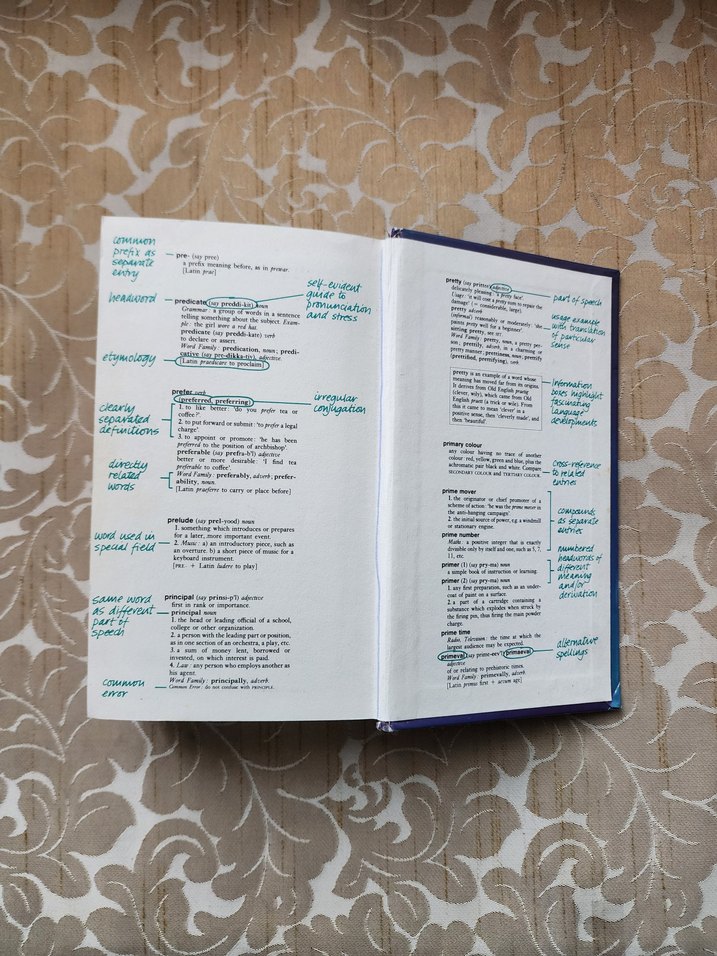 common
prefix as
separate
entry
pre- (say pree)
a prefix meaning before, as in prewar.
[Latin prae]
headword
self-evident
guide to
pronunciation
and stress
predicate (say preddi-kit) noun
Grammar: a group of words in a sentence
telling something about the subject. Exam-
ple: the girl wore a red hat.
predicate (say preddi-kate) verb
to declare or assert.
Word Family: predication, noun; predi-
cative (say pre-dikka-tiv), adjective.
etymology
[Latin praedicare to proclaim]
prefer verb
(preferred, preferring)
irregular
conjugation
clearly
separated
definitions
1. to like better: 'do you prefer tea or
coffee?'.
2. to put forward or submit: 'to prefer a legal
charge'.
3. to appoint or promote: 'he has been
preferred to the position of archbishop'.
preferable (say prefra-b'l) adjective
better or more desirable: 'I find tea
preferable to coffee'.
directly
related
words
Word Family: preferably, adverb; prefer-
ability, noun.
[Latin praeferre to carry or place before]
prelude (say prel-yood) noun
1. something which introduces or prepares
for a later, more important event.
word used in
special field
2. Music: a) an introductory piece, such as
an overture. b) a short piece of music for a
keyboard instrument.
[PRE- + Latin ludere to play]
same word
as different
part of
speech
principal (say prinsi-p'l) adjective
first in rank or importance.
principal noun
1. the head or leading official of a school,
college or other organization.
2. a person with the leading part or position,
as in one section of an orchestra, a play, etc.
3. a sum of money lent, borrowed or
invested, on which interest is paid.
4. Law: any person who employs another as
his agent.
Word Family: principally, adverb.
common
error
Common Error: do not confuse with PRINCIPLE.
pretty (say prittee) adjective
part of speech
delicately pleasing: 'a pretty face'.
Usage: 'it will cost a pretty sum to repair the
damage' (= considerable, large).
usage example
with translation
of particular
sense
pretty adverb
(informal) reasonably or moderately: 'she
paints pretty well for a beginner'.
sitting pretty, see SIT.
Word Family: pretty, noun, a pretty per-
son; prettily, adverb, in a charming or
pretty manner; prettiness, noun; prettify
(prettified, prettifying), verb.
pretty is an example of a word whose
meaning has moved far from its origins.
It derives from Old English praettig
(clever, wily), which came from Old
English praett (a trick or wile). From
this it came to mean 'clever' in a
positive sense, then 'cleverly made', and
then 'beautiful'.
information
boxes highlight
fascinating
language
developments
primary colour
any colour having no trace of another
colour: red, yellow, green and blue, plus the
achromatic pair black and white. Compare
SECONDARY COLOUR and TERTIARY COLOUR.
cross-reference
to related
entries
prime mover
1. the originator or chief promoter of a
scheme of action: 'he was the prime mover in
the anti-hanging campaign'.
2. the initial source of power, e.g. a windmill
or stationary engine.
compounds
as separate
entries
prime number
Maths: a positive integer that is exactly
divisible only by itself and one, such as 5, 7,
11, etc.
primer (1) (say pry-ma) noun
a simple book of instruction or learning.
primer (2) (say pry-ma) noun
1. any first preparation, such as an under-
coat of paint on a surface.
2. a part of a cartridge containing a
substance which explodes when struck by
the firing pin, thus firing the main powder
charge.
numbered
headwords of
different
meaning
and/or
derivation
prime time
Radio, Television: the time at which the
largest audience may be expected.
primeval (say prime-eev'l) primaeval
adjective
of or relating to prehistoric times.
Word Family: primevally, adverb.
[Latin primus first + aevum age]
alternative
spellings